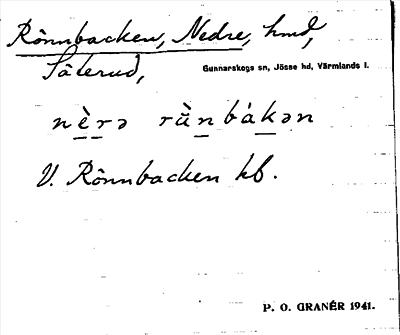 Rönnbacken, Nedre, hmd,
Säterud,
Gunnarskogs sn, Jösse hd, Värmlands l.
nè̱ṟə rǜṉbákə̱n
V. Rönnbacken kb.
P. O. GRANÉR 1941.